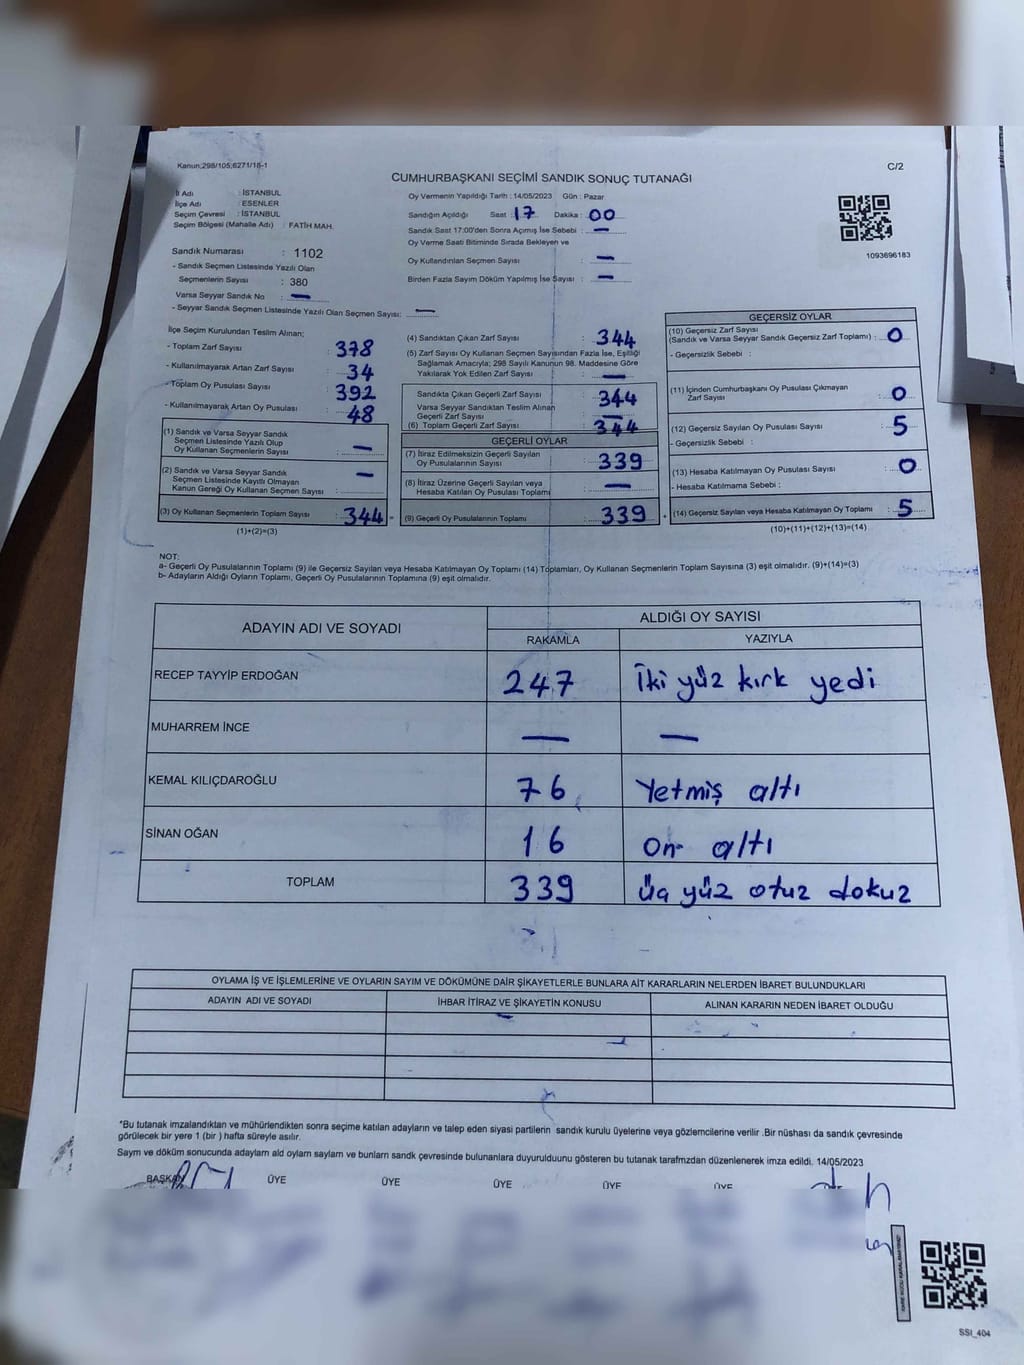 Kanun;298/105;6271/18-1
C/2
CUMHURBAŞKANI SEÇİMİ SANDIK SONUÇ TUTANAĞI
İl Adı : İSTANBUL
İlçe Adı : ESENLER
Seçim Çevresi : İSTANBUL
Seçim Bölgesi (Mahalle Adı) : FATİH MAH.
Sandık Numarası : 1102
- Sandık Seçmen Listesinde Yazılı Olan
Seçmenlerin Sayısı : 380
Varsa Seyyar Sandık No : —
- Seyyar Sandık Seçmen Listesinde Yazılı Olan Seçmen Sayısı: —
Oy Vermenin Yapıldığı Tarih : 14/05/2023 Gün : Pazar
Sandığın Açıldığı Saat : 17 Dakika : 00
Sandık Saat 17:00'den Sonra Açımış İse Sebebi : —
Oy Verme Saati Bitiminde Sırada Bekleyen ve
Oy Kullandırılan Seçmen Sayısı : —
Birden Fazla Sayım Döküm Yapılmış İse Sayısı : —
1093696183
İlçe Seçim Kurulundan Teslim Alınan;
- Toplam Zarf Sayısı : 378
- Kullanılmayarak Artan Zarf Sayısı : 34
- Toplam Oy Pusulası Sayısı : 392
- Kullanılmayarak Artan Oy Pusulası : 48
(1) Sandık ve Varsa Seyyar Sandık
Seçmen Listesinde Yazılı Olup
Oy Kullanan Seçmenlerin Sayısı : —
(2) Sandık ve Varsa Seyyar Sandık
Seçmen Listesinde Kayıtlı Olmayan
Kanun Gereği Oy Kullanan Seçmen Sayısı : —
(3) Oy Kullanan Seçmenlerin Toplam Sayısı : 344 =
(1)+(2)=(3)
(4) Sandıktan Çıkan Zarf Sayısı : 344
(5) Zarf Sayısı Oy Kullanan Seçmen Sayısından Fazla İse, Eşitliği
Sağlamak Amacıyla; 298 Sayılı Kanunun 98. Maddesine Göre
Yakılarak Yok Edilen Zarf Sayısı : —
Sandıkta Çıkan Geçerli Zarf Sayısı : 344
Varsa Seyyar Sandıktan Teslim Alınan
Geçerli Zarf Sayısı : —
(6) Toplam Geçerli Zarf Sayısı : 344
GEÇERLİ OYLAR
(7) İtiraz Edilmeksizin Geçerli Sayılan
Oy Pusulalarının Sayısı : 339
(8) İtiraz Üzerine Geçerli Sayılan veya
Hesaba Katılan Oy Pusulası Toplamı : —
(9) Geçerli Oy Pusulalarının Toplamı : 339 +
GEÇERSİZ OYLAR
(10) Geçersiz Zarf Sayısı
(Sandık ve Varsa Seyyar Sandık Geçersiz Zarf Toplamı) : 0
- Geçersizlik Sebebi :
(11) İçinden Cumhurbaşkanı Oy Pusulası Çıkmayan
Zarf Sayısı : 0
(12) Geçersiz Sayılan Oy Pusulası Sayısı : 5
- Geçersizlik Sebebi :
(13) Hesaba Katılmayan Oy Pusulası Sayısı : 0
- Hesaba Katılmama Sebebi :
(14) Geçersiz Sayılan veya Hesaba Katılmayan Oy Toplamı : 5
(10)+(11)+(12)+(13)=(14)
NOT:
a- Geçerli Oy Pusulalarının Toplamı (9) ile Geçersiz Sayılan veya Hesaba Katılmayan Oy Toplamı (14) Toplamları, Oy Kullanan Seçmenlerin Toplam Sayısına (3) eşit olmalıdır. (9)+(14)=(3)
b- Adayların Aldığı Oyların Toplamı, Geçerli Oy Pusulalarının Toplamına (9) eşit olmalıdır.
ADAYIN ADI VE SOYADI
ALDIĞI OY SAYISI
RAKAMLA YAZIYLA
RECEP TAYYİP ERDOĞAN 247 İki yüz kırk yedi
MUHARREM İNCE — —
KEMAL KILIÇDAROĞLU 76 Yetmiş altı
SİNAN OĞAN 16 on altı
TOPLAM 339 üç yüz otuz dokuz
OYLAMA İŞ VE İŞLEMLERİNE VE OYLARIN SAYIM VE DÖKÜMÜNE DAİR ŞİKAYETLERLE BUNLARA AİT KARARLARIN NELERDEN İBARET BULUNDUKLARI
ADAYIN ADI VE SOYADI İHBAR İTİRAZ VE ŞİKAYETİN KONUSU ALINAN KARARIN NEDEN İBARET OLDUĞU
*Bu tutanak imzalandıktan ve mühürlendikten sonra seçime katılan adayların ve talep eden siyasi partilerin sandık kurulu üyelerine veya gözlemcilerine verilir .Bir nüshası da sandık çevresinde
görülecek bir yere 1 (bir ) hafta süreyle asılır.
Sayım ve döküm sonucunda adayların aldığı oyların sayıları ve bunların sandık çevresinde bulunanlara duyurulduğunu gösteren bu tutanak tarafımızdan düzenlenerek imza edildi. 14/05/2023
BAŞKAN ÜYE ÜYE ÜYE ÜYE ÜYE
SSI_404